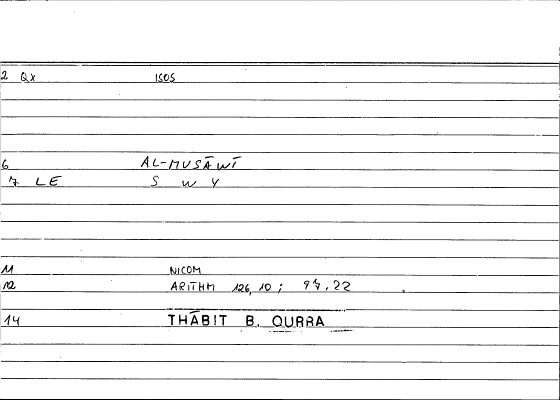 2 QX ISOS
6 AL-MUSĀWĪ
7 LE S W Y
11 NICOM
12 ARITHM 126,10; 97,22
14 THĀBIT B. QURRA